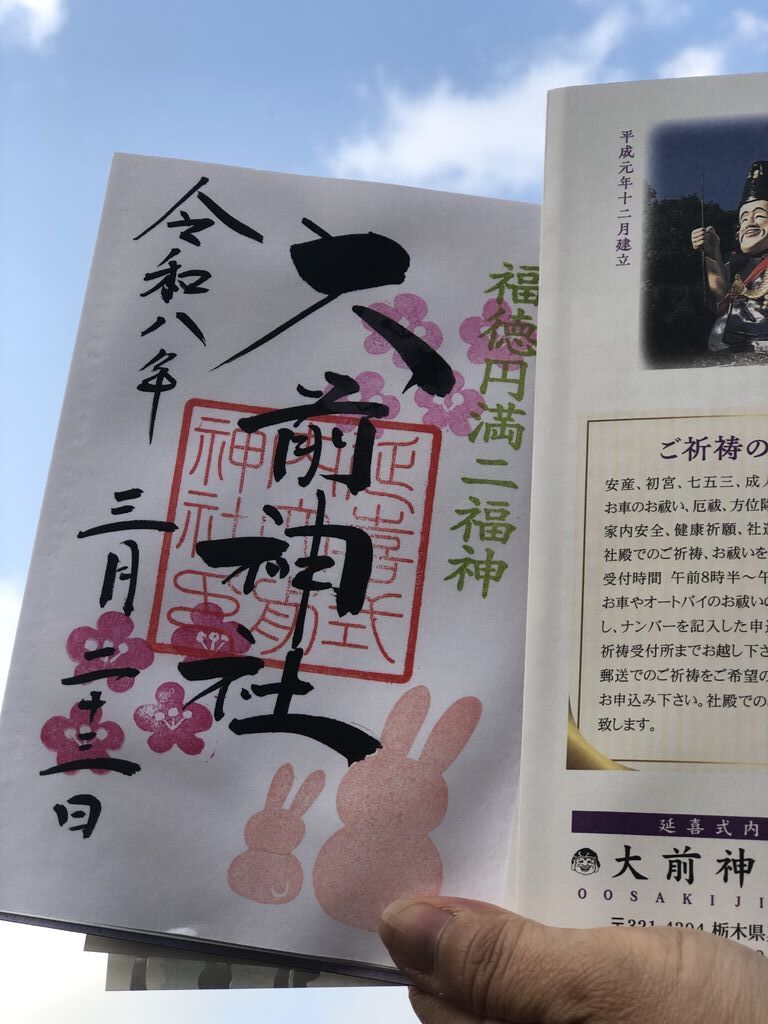 福徳円満二福神
大前神社
延喜式内大前神社印
令和八年
三月二十三日
平成元年十二月建立
ご祈祷の
安産、初宮、七五三、成人
お車のお祓い、厄祓、方位除
家内安全、健康祈願、社運
社殿でのご祈祷、お祓いを
受付時間 午前8時半〜午
お車やオートバイのお祓いの
し、ナンバーを記入した申込
祈祷受付所までお越し下さ
郵送でのご祈祷をご希望の
お申込み下さい。社殿での
致します。
延喜式内
大前神
OOSAKIJI
〒321-4304 栃木県